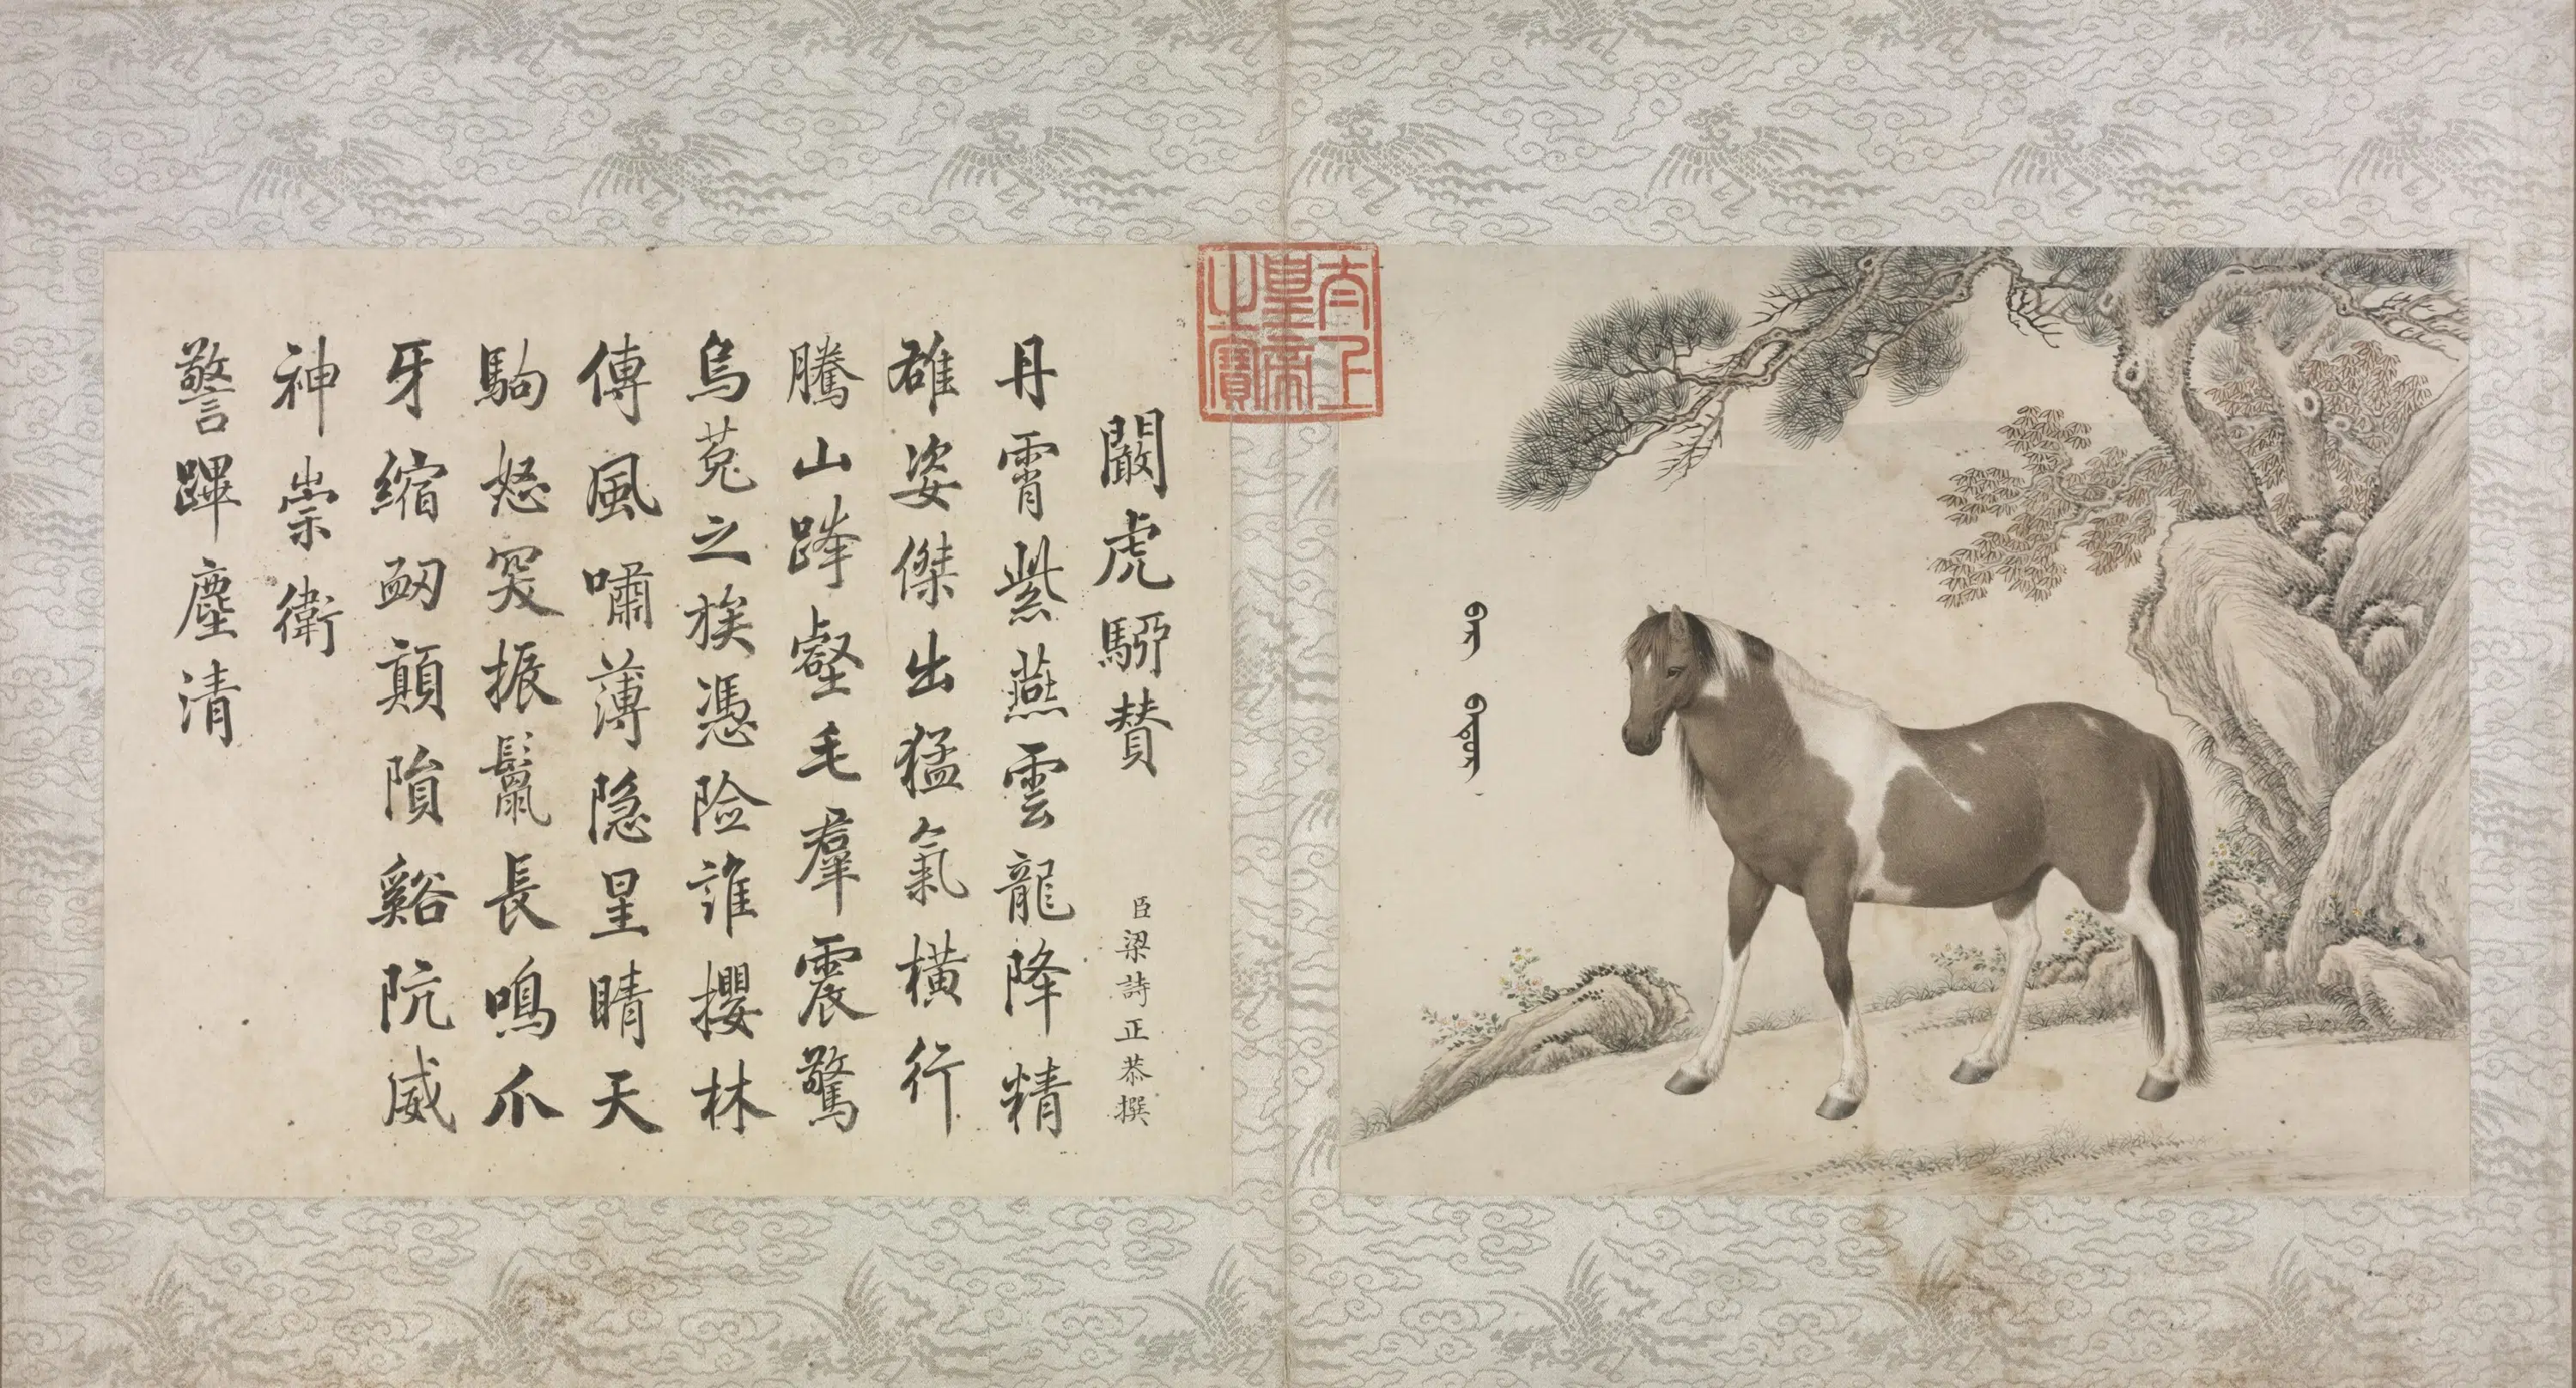 闞虎騢贊
臣梁詩正恭撰
丹霄紫燕雲龍降精
雄姿傑出猛氣橫行
騰山跨壑毛羣震驚
烏菟之族憑險誰攖林
傳風嘯薄隱星睛天
駒怒突振鬣長鳴爪
牙縮衂顛隕谿阬威
神崇衛
警蹕塵清
太上皇帝之寶